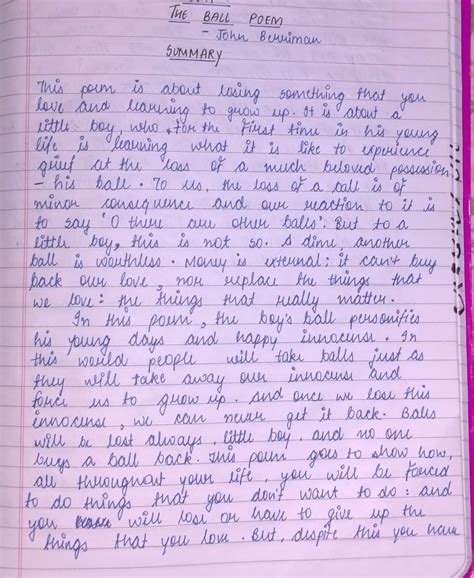 THE BALL POEM
- John Berriman
SUMMARY
This poem is about losing something that you
love and learning to grow up. It is about a
little boy, who, for the first time in his young
life is learning what it is like to experience
grief at the loss of a much beloved possession
- his ball. To us, the loss of a ball is of
minor consequence and our reaction to it is
to say 'O there are other balls'. But to a
little boy, this is not so. A dime, another
ball is worthless. Money is external: it can't buy
back our love, nor replace the things that
we love: the things that really matter.
In this poem, the boy's ball personifies
his young days and happy innocense. In
this world people will take balls just as
they will take away our innocense and
force us to grow up. And once we lose this
innocense, we can never get it back. Balls
will be lost always, little boy. and no one
buys a ball back. This poem goes to show how,
all throughout your life, you will be forced
to do things that you don't want to do: and
you will lose or have to give up the
things that you love. But, despite this you have